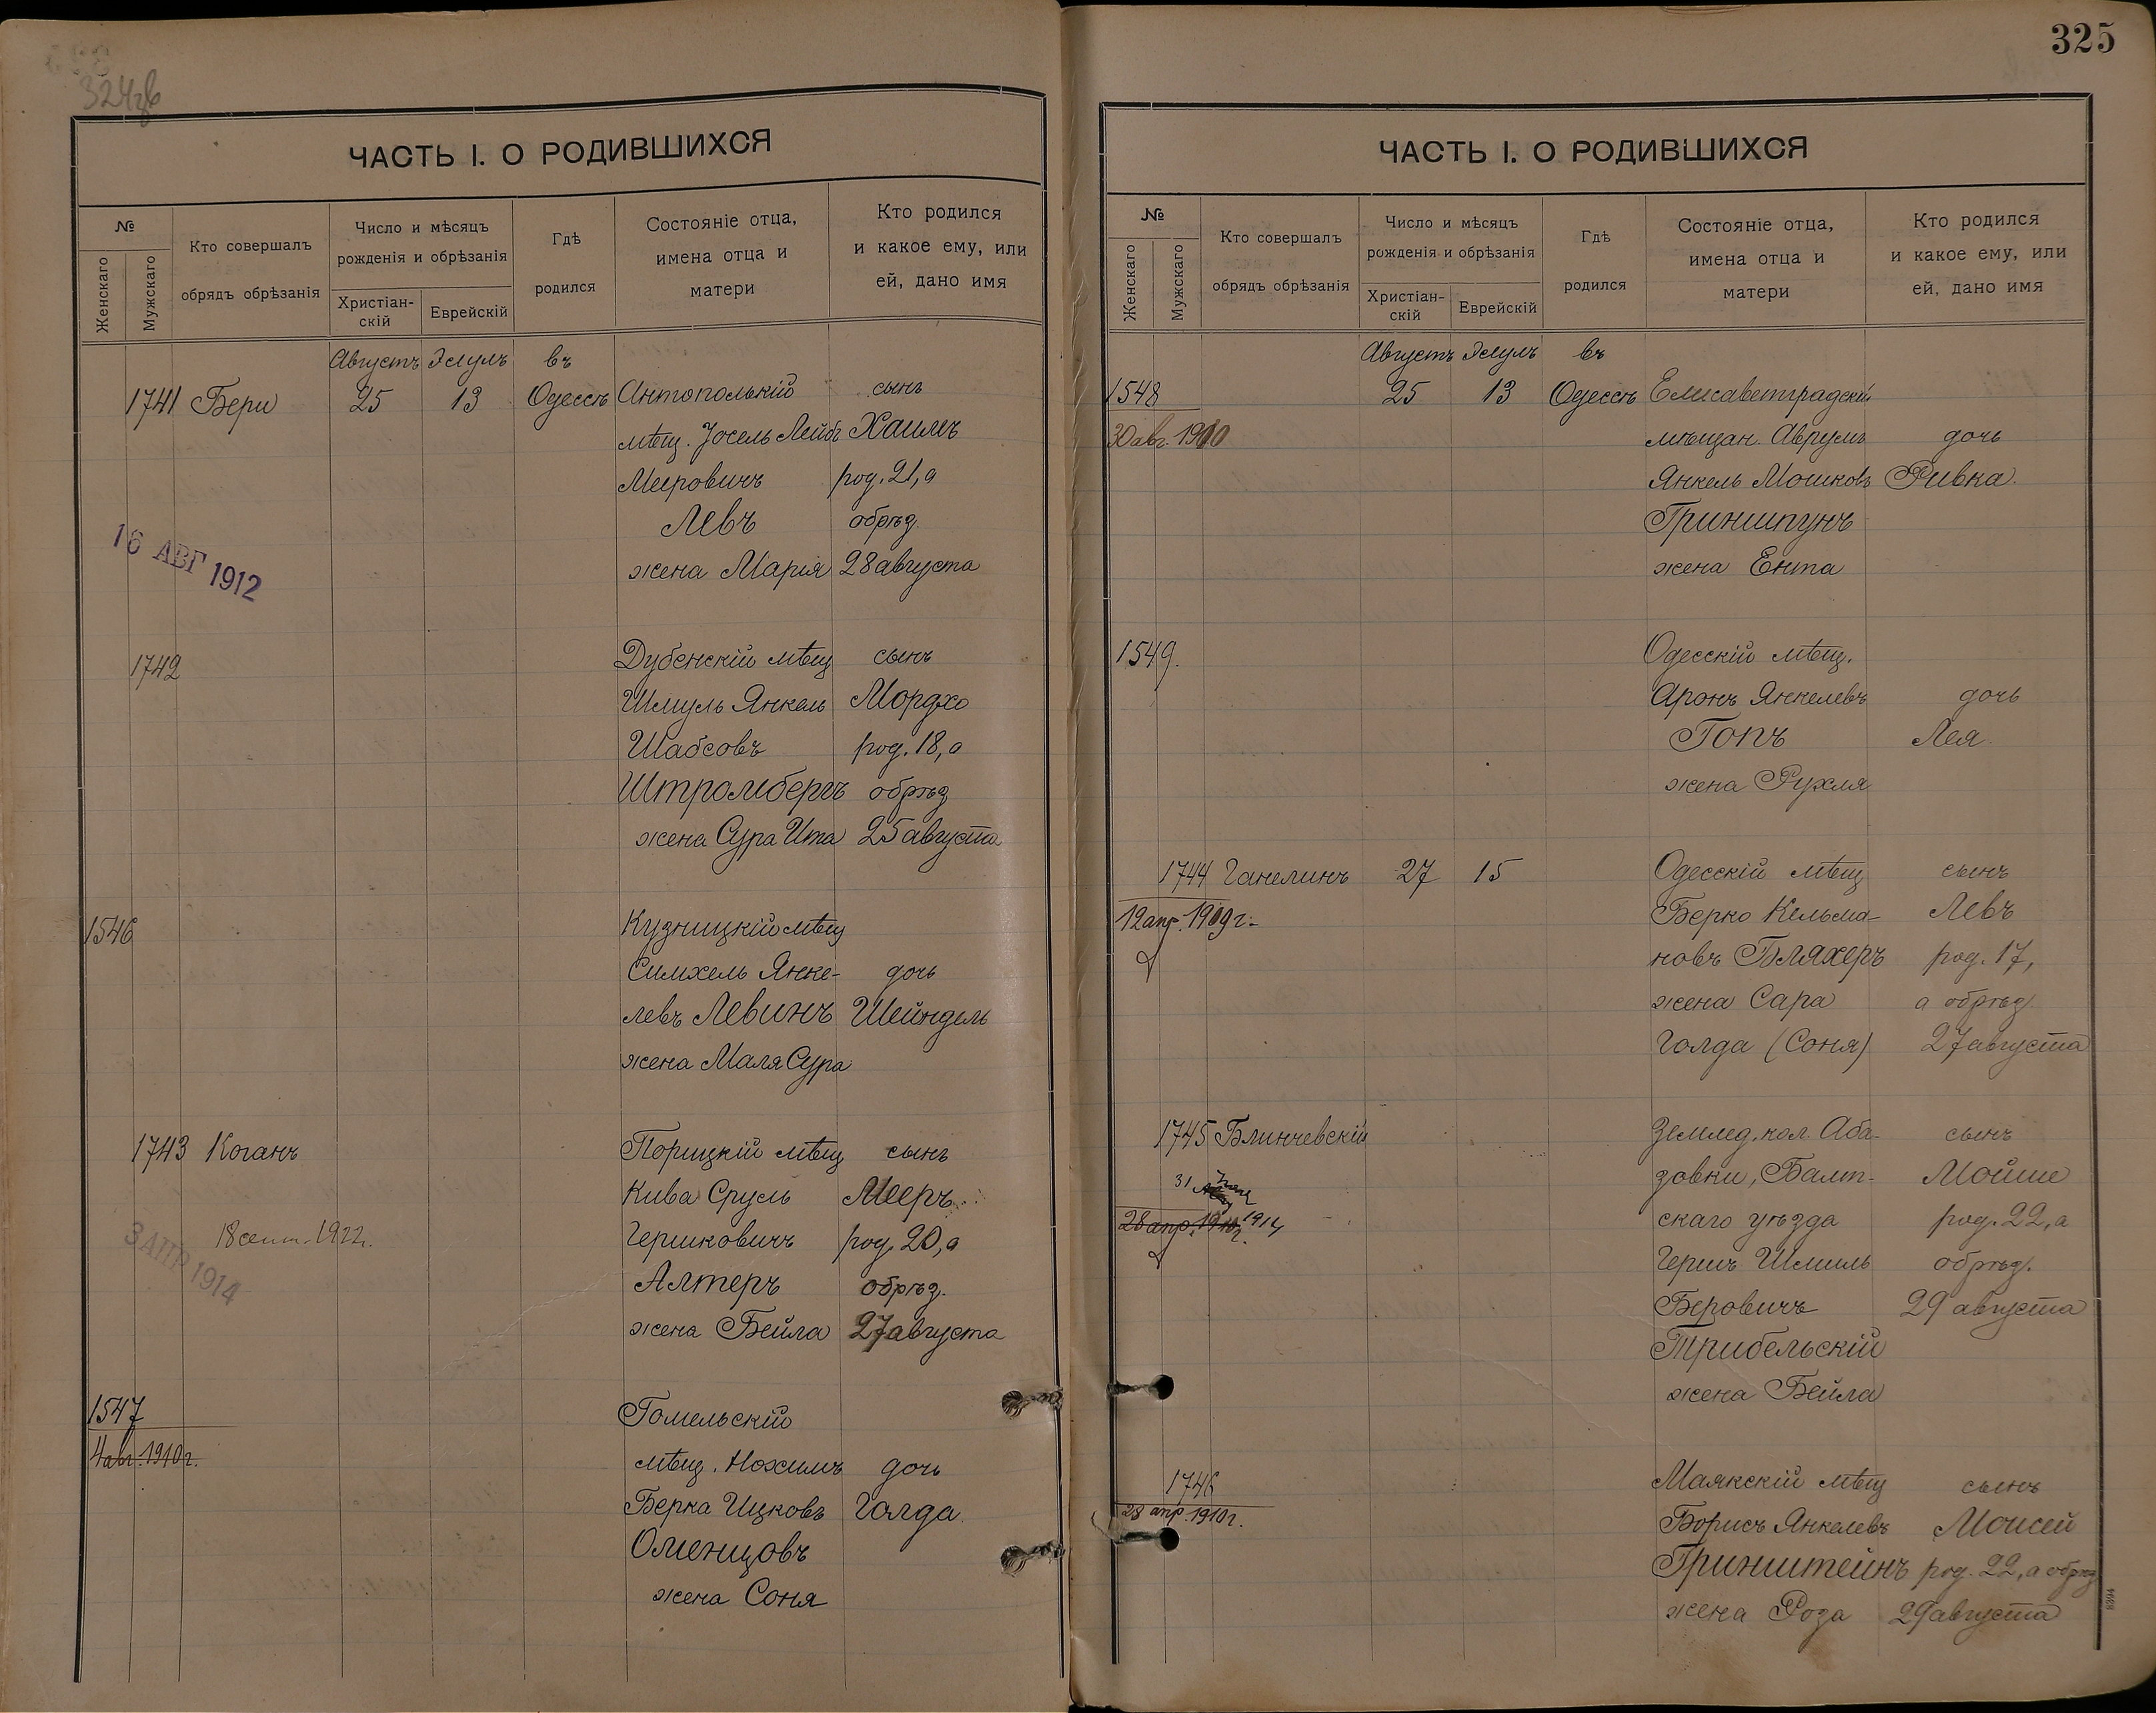 324зв
ЧАСТЬ I. О РОДИВШИХСЯ
№
Женскаго
Мужскаго
Кто совершалъ
обрядъ обрѣзанія
Число и мѣсяцъ
рожденія и обрѣзанія
Христіан-
скій
Еврейскій
Гдѣ
родился
Состояніе отца,
имена отца и
матери
Кто родился
и какое ему, или
ей, дано имя
Августъ Элулъ въ
1741 Бери 25 13 Одессѣ Антопольскій сынъ
мѣщ. Іосель Лейбъ Хаимъ
Мееровичъ род. 21, а
Левъ обрѣз.
жена Марія 28 августа
16 АВГ 1912
1742 Дубенскій мѣщ сынъ
Шмуль Янкель Мордко
Шабсовъ род. 18, а
Штромбергъ обрѣз
жена Сура Ита 25 августа
1546 Кузницкій мѣщ
Симхель Янке- дочь
левъ Левинъ Шейндель
жена Маля Сура
1743 Коганъ Порицкій мѣщ сынъ
Кива Сруль Мееръ
18 сент. 1922г. Гершковичъ род. 20, а
3 АПР 1914
Алтеръ обрѣз.
жена Бейла 27 августа
1547 Гомельскій
4 авг. 1910 г. мѣщ. Нохимъ дочь
Берка Ицковъ Голда
Оменцовъ
жена Соня
325
ЧАСТЬ I. О РОДИВШИХСЯ
№
Женскаго
Мужскаго
Кто совершалъ
обрядъ обрѣзанія
Число и мѣсяцъ
рожденія и обрѣзанія
Христіан-
скій
Еврейскій
Гдѣ
родился
Состояніе отца,
имена отца и
матери
Кто родился
и какое ему, или
ей, дано имя
Августъ Элулъ въ
1548 25 13 Одессѣ Елисаветградскій
30 авг. 1910 мѣщан. Аврумъ дочь
Янкель Мошковъ Ривка
Гриншпунъ
жена Ента
1549. Одесскій мѣщ.
Аронъ Янкелевъ дочь
Гопъ Лея
жена Рухля
1744 Ганелинъ 27 15 Одесскій мѣщ сынъ
12 апр. 1909 г. Берко Кельма- Левъ
новъ Бляхеръ род. 17,
жена Сара а обрѣз
Голда (Соня) 27 августа
1745 Блинчевскій Землед. кол. Аба- сынъ
31
зовки, Балт- Мойше
28 апр. 1910 г. 1914 скаго уѣзда род. 22, а
Гершъ Шмиль обрѣз.
Беровичъ 29 августа
Трибельскій
жена Бейла
1746 Маякскій мѣщ сынъ
28 апр. 1910 г. Борисъ Янкелевъ Моисей
Гринштейнъ род. 22, а обрѣз
жена Роза 29 августа